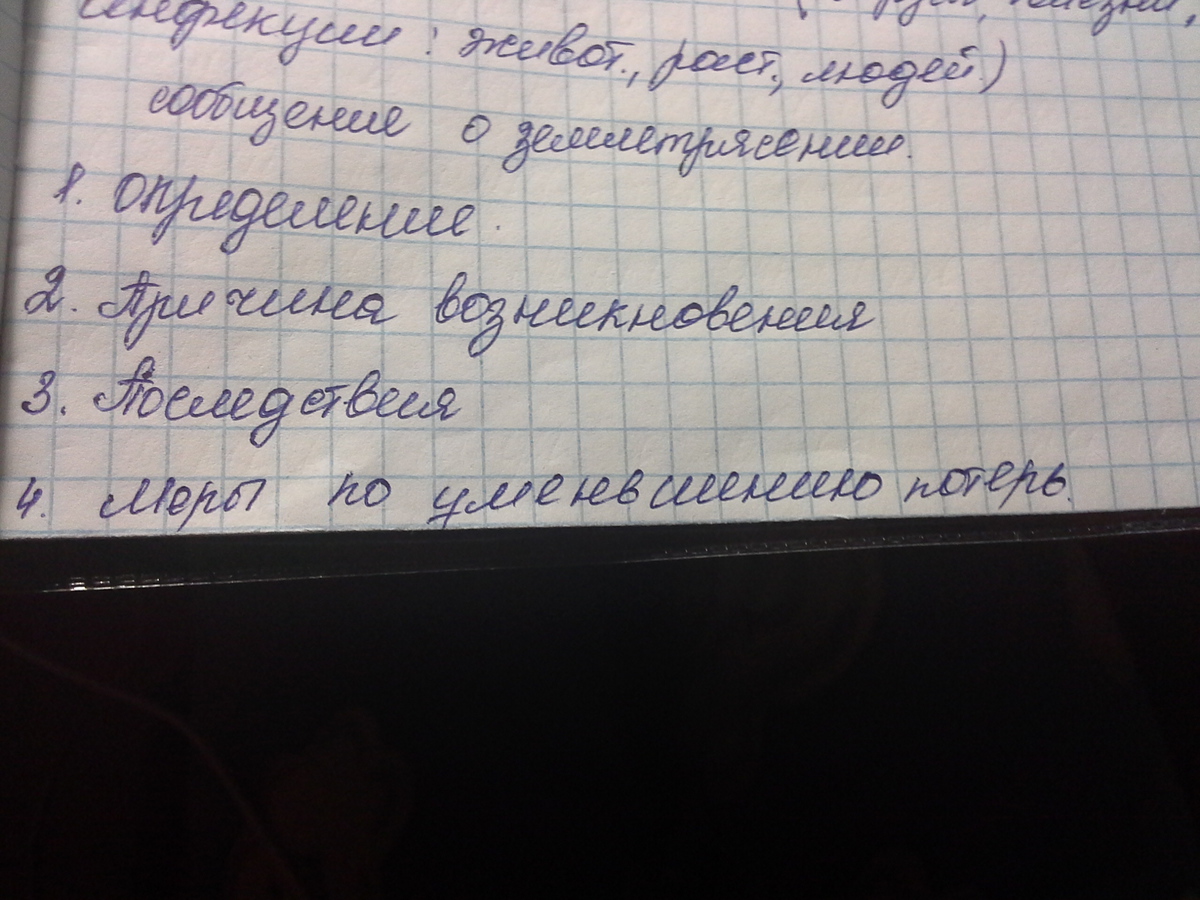 инфекции: живот., раст., людей.)
сообщение о землетрясении.
1. Определение.
2. Причина возникновения
3. Последствия
4. Меры по уменьшению потерь.